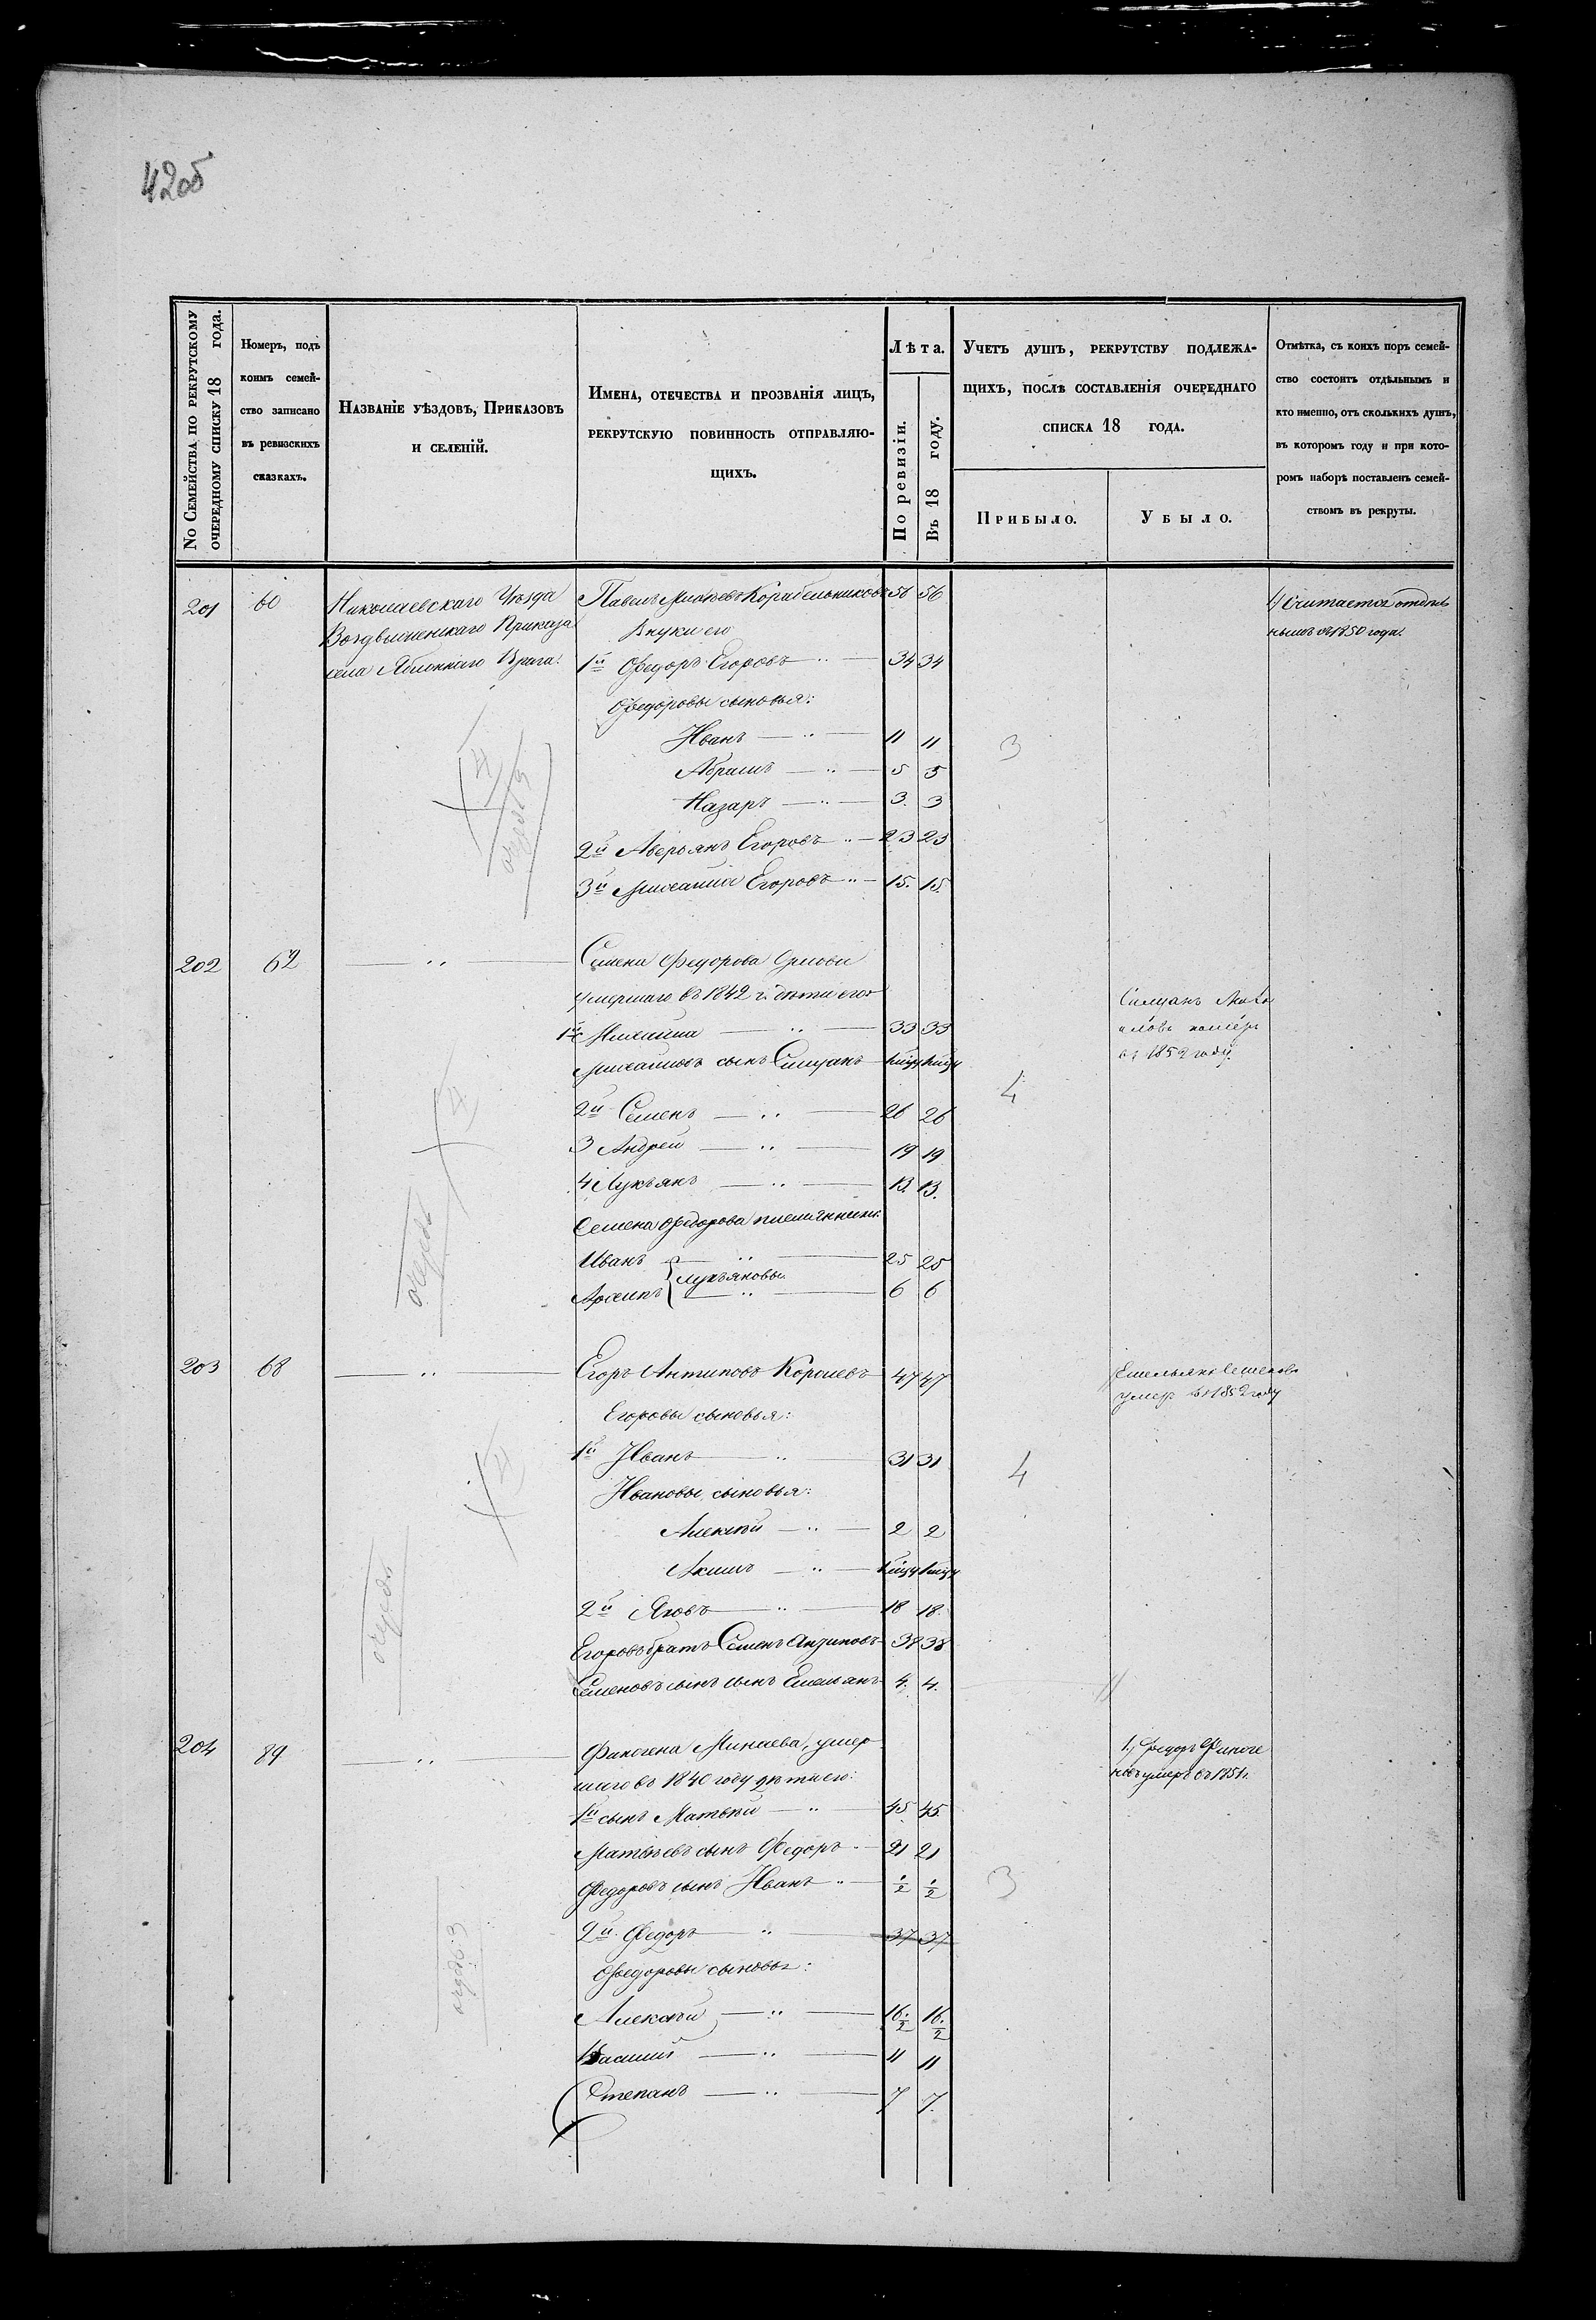 42об
№ Семейства по рекрутскому очередному списку 18 года.
Номеръ, подъ
коимъ семей-
ство записано
въ ревизскихъ
сказкахъ.
Названіе уѣздовъ, Приказовъ
и селеній.
Имена, отечества и прозванія лицъ,
рекрутскую повинность отправляю-
щихъ.
Лѣта.
По ревизіи.
Въ 18 году.
Учетъ душъ, рекрутству подлежа-
щихъ, послѣ составленія очереднаго
списка 18 года.
Прибыло.
Убыло.
Отмѣтка, съ коихъ поръ семей-
ство состоитъ отдѣльнымъ и
кто именно, отъ сколькихъ душъ,
въ которомъ году и при кото-
ромъ наборѣ поставленъ семей-
ствомъ въ рекруты.
201 60 Николаевскаго Уѣзда Павелъ Корабельниковъ 56 56 1) Считается отдѣль
Воздвиженскаго Приказа Внуки его нымъ съ 1850 года.
села Яблоннаго Врага. 1й Федоръ Егоровъ 34 34
Федоровы сыновья:
Иванъ 11 11
Абрамъ 5 5
3
Назаръ 3 3
2й Аверьянъ Егоровъ 23 23
3й Михаилъ Егоровъ 15 15
202 62 Семена Федорова
умершаго въ 1842 г. дѣти его
1й Михаила 33 33
Михаиловъ сынъ
въ 1852 году.
4
2й Семенъ 26 26
3 Андрей 19 19
4 Лукьянъ 13 13
Семена Федорова племянники
Иванъ 25 25
Лукьяновы
Архипъ 6 6
очередь
203 68 Егоръ Антиповъ Королевъ 47 47 Емельянъ Семеновъ
Егоровы сыновья: умеръ въ 1852 году
1й Иванъ 31 31
4
Ивановы сыновья:
Алексѣй 2 2
Акимъ
2й Яковъ 18 18
Егоровъ братъ Семенъ Антиповъ 38 38
Семеновъ сынъ сынъ Емельянъ 4 4
очередь
204 89 Финогена Минаева, умер 1) Федоръ Финоге
шаго въ 1840 году дѣти его: новъ умеръ въ 1851 г.
1й сынъ Матвѣй 45 45
Матвѣевъ сынъ Федоръ 21 21
Федоровъ сынъ Иванъ ½ ½
3
2й Федоръ 37 37
Федоровы сыновья:
Алексѣй 16½ 16½
Василій 11 11
Степанъ 7 7